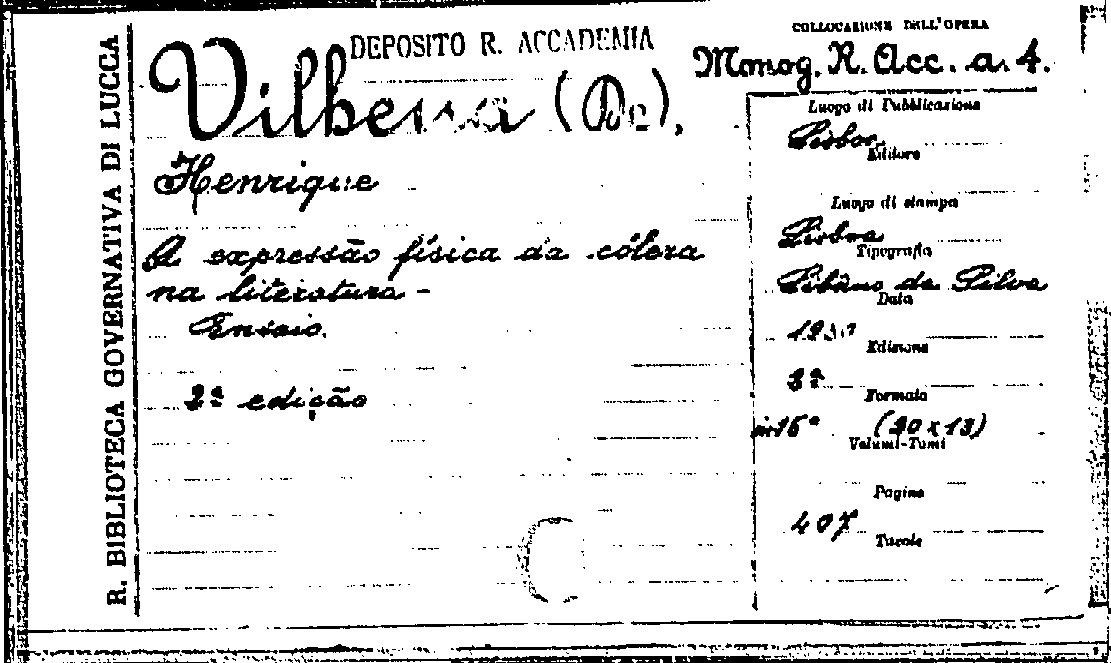 R. BIBLIOTECA GOVERNATIVA DI LUCCA
DEPOSITO R. ACCADEMIA
Vilhena (De),
Henrique
A expressão física da cólera
na literatura -
Ensaio.
2ª edição
COLLOCAZIONE DELL'OPERA
Monog. R. Acc. a. 4.
Luogo di Pubblicazione
Lisboa
Editore
Luogo di stampa
Lisboa
Tipografia
Libânio da Silva
Data
Edizione
2ª
Formato
in 16° (20 x 13)
Volumi-Tomi
Pagine
407
Tavole